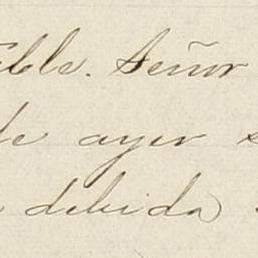 ble. Señor
de ayer s
debida